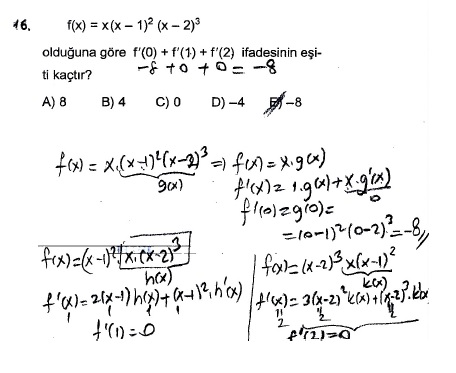 16. f(x) = x(x – 1)² (x – 2)³
olduğuna göre f'(0) + f'(1) + f'(2) ifadesinin eşi-
ti kaçtır? -8 + 0 + 0 = -8
A) 8 B) 4 C) 0 D) –4 E) –8
f(x) = x.(x-1)²(x-2)³ ⇒ f(x) = x.g(x)
g(x)
f'(x) = 1.g(x) + x.g'(x)
0
f'(0) = g(0) =
= (0-1)²(0-2)³ = -8//
f(x) = (x-1)². x.(x-2)³
h(x)
f'(x) = 2(x-1) h(x) + (x-1)². h'(x)
1 1 1
f'(1) = 0
f(x) = (x-2)³. x(x-1)²
k(x)
f'(x) = 3(x-2)² k(x) + (x-2)³. k(x)
2 2 2
f'(2) = 0